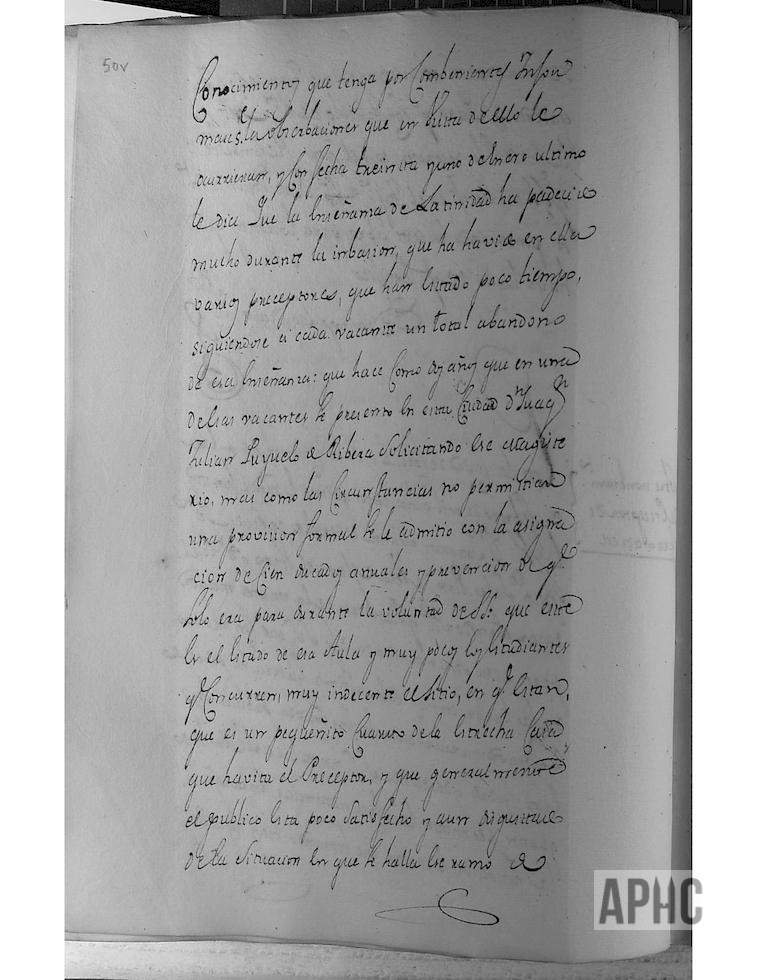 50v
Conocimientos que tenga por Combenientes Infor
mes, las obserbaciones que en Vista de ello le
ocurrieran, y Con fecha treinta y uno de Enero ultimo
le dice Que la Enseñanza de Latinidad ha padecido
mucho durante la imbasion, que ha havido en ella
varios preceptores, que han Estado poco tiempo,
siguiendose a cada vacante un total abandono
de esa Enseñanza: que hace Como dos años que en una
de las vacantes se presento en esta Ciudad Dn Juaqn
Julian Puyuelo de Ribera Solicitando Ese Magiste
rio, mas como las Circunstancias no permitian
una provision formal se le admitio con la asigna
cion de Cien ducados anuales y prevencion de qe
solo era para durante la voluntad de SS. que este
Es el Estado de esa Aula y muy pocos los Estudiantes
qe Concurren, muy indecente el Sitio, en qe Estan,
que es un pequeñito Cuarto de la Estrecha Casa
que havita el Preceptor, y que generalmente
el publico Esta poco Satisfecho y aun disgustado
de la Situacion En que se halla Ese ramo de
APHC